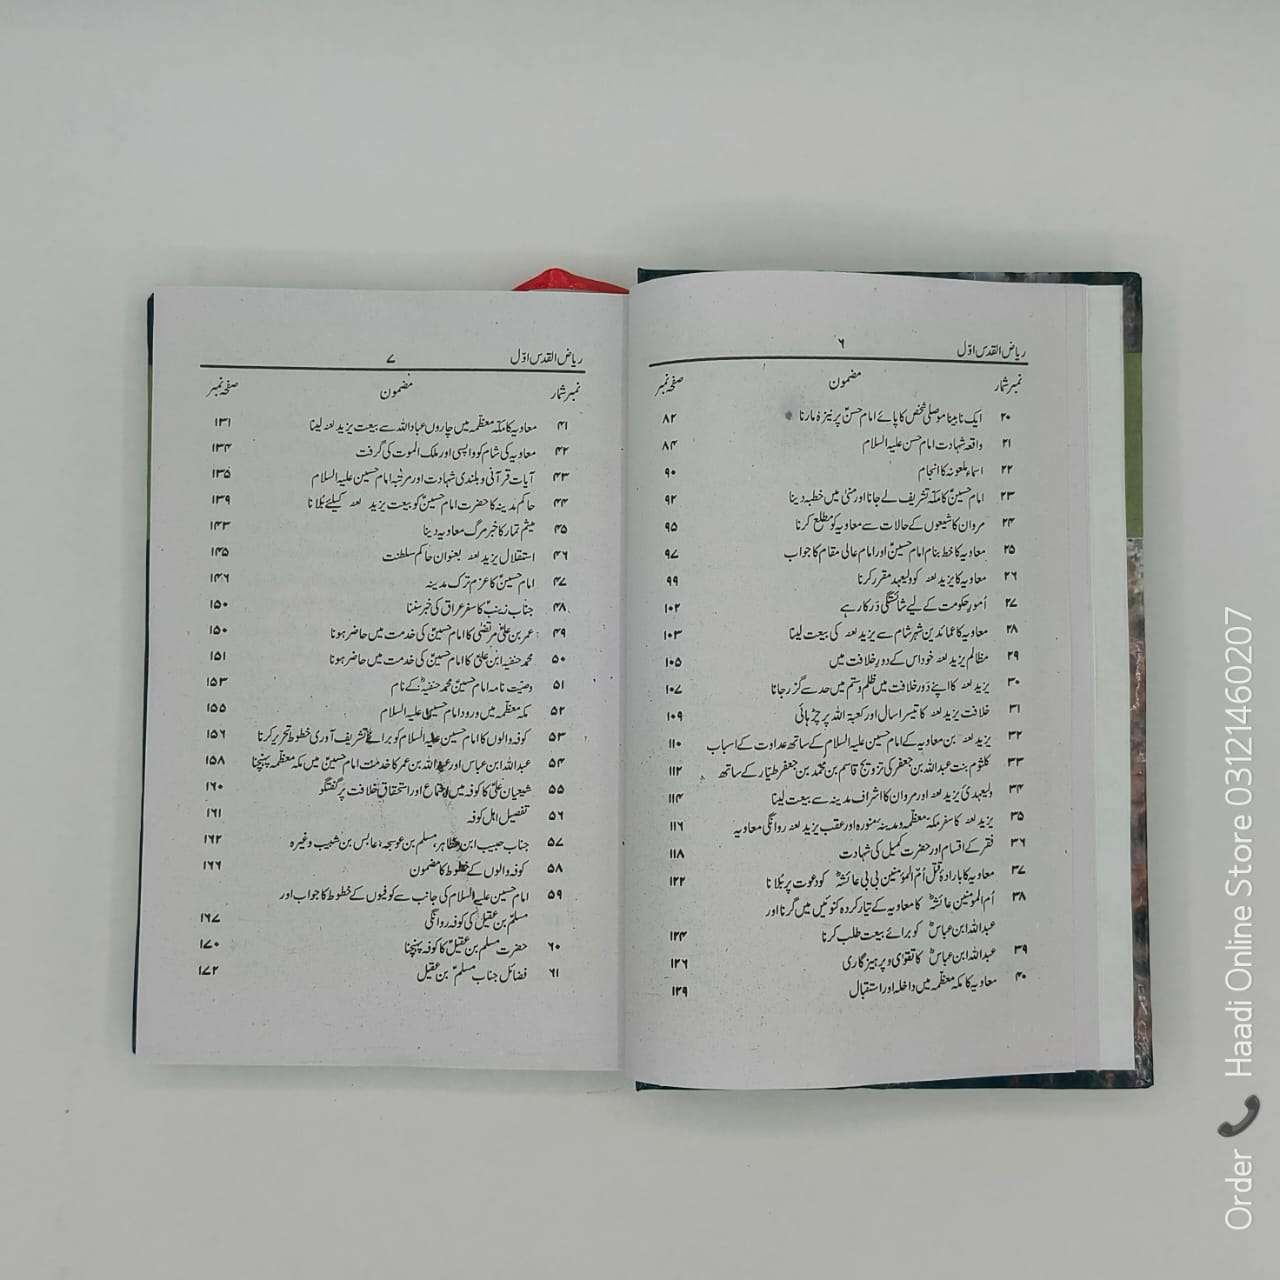 ریاض القدس اوّل ۶
نمبر شمار مضمون صفحہ نمبر
۲۰ ایک نابینا موصلی شخص کا پائے امام حسنؑ پر نیزہ مارنا ۸۲
۲۱ واقعہ شہادت امام حسن علیہ السلام ۸۴
۲۲ اسماء ملعونہ کا انجام ۹۰
۲۳ امام حسینؑ کا مکہ تشریف لے جانا اور منیٰ میں خطبہ دینا ۹۲
۲۴ مروان کا شیعوں کے حالات سے معاویہ کو مطلع کرنا ۹۵
۲۵ معاویہ کا خط بنام امام حسینؑ اور امام عالی مقام کا جواب ۹۷
۲۶ معاویہ کا یزید لعنہ کو ولیعہد مقرر کرنا ۹۹
۲۷ اُمورِ حکومت کے لیے شائستگی درکار ہے ۱۰۲
۲۸ معاویہ کا عمائدین شہر شام سے یزید لعنہ کی بیعت لینا ۱۰۳
۲۹ مظالم یزید لعنہ خود اس کے دورِ خلافت میں ۱۰۵
۳۰ یزید لعنہ کا اپنے دَور خلافت میں ظلم و ستم میں حد سے گزر جانا ۱۰۷
۳۱ خلافت یزید لعنہ کا تیسرا سال اور کعبۃ اللہ پر چڑہائی ۱۰۹
۳۲ یزید لعنہ بن معاویہ کے امام حسین علیہ السلام کے ساتھ عداوت کے اسباب ۱۱۰
۳۳ کلثوم بنت عبداللہ بن جعفر کی تزویج قاسم بن محمد بن جعفر طیار کے ساتھ ۱۱۲
۳۴ ولیعہدی یزید لعنہ اور مروان کا اشراف مدینہ سے بیعت لینا ۱۱۴
۳۵ یزید لعنہ کا سفر مکہ معظمہ و مدینہ منورہ اور عقب یزید لعنہ روانگی معاویہ ۱۱۶
۳۶ فقر کے اقسام اور حضرت کمیل کی شہادت ۱۱۸
۳۷ معاویہ کا بارادۂ قتل اُمّ المؤمنین بی بی عائشہؓ کو دعوت پر بلانا ۱۲۲
۳۸ اُم المؤمنین عائشہؓ کا معاویہ کے تیار کردہ کنوئیں میں گرنا اور
عبداللہ ابن عباسؓ کو برائے بیعت طلب کرنا ۱۲۴
۳۹ عبداللہ ابن عباسؓ کا تقویٰ و پرہیزگاری ۱۲۶
۴۰ معاویہ کا مکہ معظمہ میں داخلہ اور استقبال ۱۲۹
ریاض القدس اوّل ۷
نمبر شمار مضمون صفحہ نمبر
۴۱ معاویہ کا مکہ معظمہ میں چاروں عباد اللہ سے بیعت یزید لعنہ لینا ۱۳۱
۴۲ معاویہ کی شام کو واپسی اور ملک الموت کی گرفت ۱۳۴
۴۳ آیات قرآنی و بلندی شہادت اور مرتبہ امام حسین علیہ السلام ۱۳۵
۴۴ حاکم مدینہ کا حضرت امام حسینؑ کو بیعت یزید لعنہ کیلئے بلانا ۱۳۹
۴۵ میثم تمار کا خبر مرگ معاویہ دینا ۱۴۳
۴۶ استقلال یزید لعنہ بعنوان حاکم سلطنت ۱۴۵
۴۷ امام حسینؑ کا عزم ترک مدینہ ۱۴۶
۴۸ جناب زینبؑ کا سفر عراق کی خبر سننا ۱۵۰
۴۹ عمر بن علی مرتضٰیؑ کا امام حسینؑ کی خدمت میں حاضر ہونا ۱۵۰
۵۰ محمد حنفیہ ابن علیؑ کا امام حسینؑ کی خدمت میں حاضر ہونا ۱۵۱
۵۱ وصیت نامہ امام حسینؑ محمد حنفیہؓ کے نام ۱۵۳
۵۲ مکہ معظمہ میں ورود امام حسین علیہ السلام ۱۵۵
۵۳ کوفہ والوں کا امام حسین علیہ السلام کو برائے تشریف آوری خطوط تحریر کرنا ۱۵۶
۵۴ عبداللہ ابن عباس اور عبداللہ بن عمر کا خدمت امام حسینؑ میں مکہ معظمہ پہنچنا ۱۵۸
۵۵ شیعیان علیؑ کا کوفہ میں اجتماع اور استحقاق خلافت پر گفتگو ۱۶۰
۵۶ تفصیل اہل کوفہ ۱۶۱
۵۷ جناب حبیب ابن مظاہر، مسلم بن عوسجہ، عابس بن شبیب وغیرہ ۱۶۲
۵۸ کوفہ والوں کے خطوط کا مضمون ۱۶۶
۵۹ امام حسین علیہ السلام کی جانب سے کوفیوں کے خطوط کا جواب اور
مسلمؑ بن عقیل کی کوفہ روانگی ۱۶۷
۶۰ حضرت مسلم بن عقیلؑ کا کوفہ پہنچنا ۱۷۰
۶۱ فضائل جناب مسلمؑ بن عقیل ۱۷۲
Order Haadi Online Store 03121460207